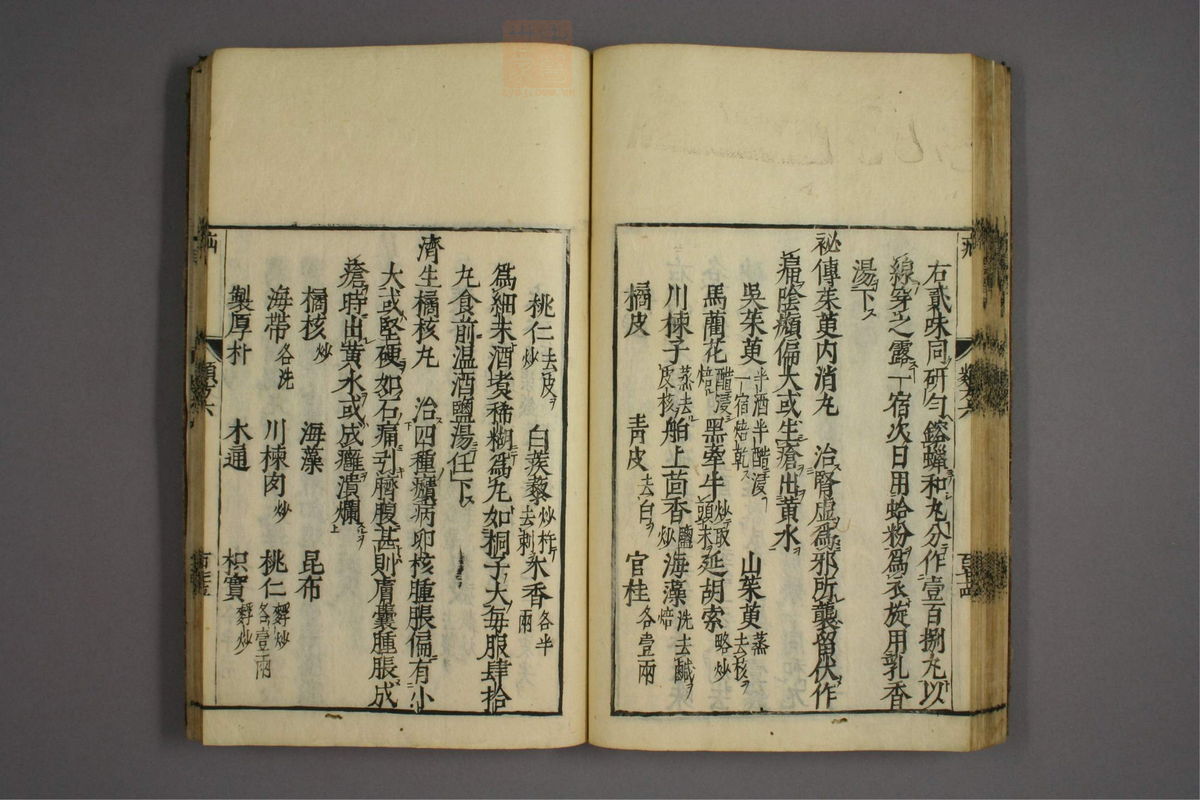 右貳味同研勻鎔蠟和丸分作壹百捌丸以
線穿之露一宿次日用蛤粉爲衣旋用乳香
湯下ス
祕傳茱萸内消丸 治腎虛爲邪所襲留伏作
痛陰㿗偏大或生瘡出黄水
吳茱萸半酒半醋浸一宿焙乾 山茱萸蒸去核
馬藺花醋浸焙 黑牽牛炒取頭末 延胡索略炒
川楝子蒸去皮核 舶上茴香鹽炒 海藻洗去鹹焙
橘皮 青皮去白 官桂各壹兩
桃仁去皮炒 白蒺藜炒杵去刺 木香各半兩
爲細末酒煑稀糊爲丸如桐子大每服肆拾
丸食前温酒鹽湯任下
濟生橘核丸 治四種㿗病卵核腫脹偏有小
大或堅硬如石痛引臍腹甚則膚囊腫脹成
瘡時出黄水或成癰潰爛
橘核炒 海藻 昆布
海帶各洗 川楝肉炒 桃仁麩炒各壹兩
製厚朴 木通 枳實麩炒
類方六